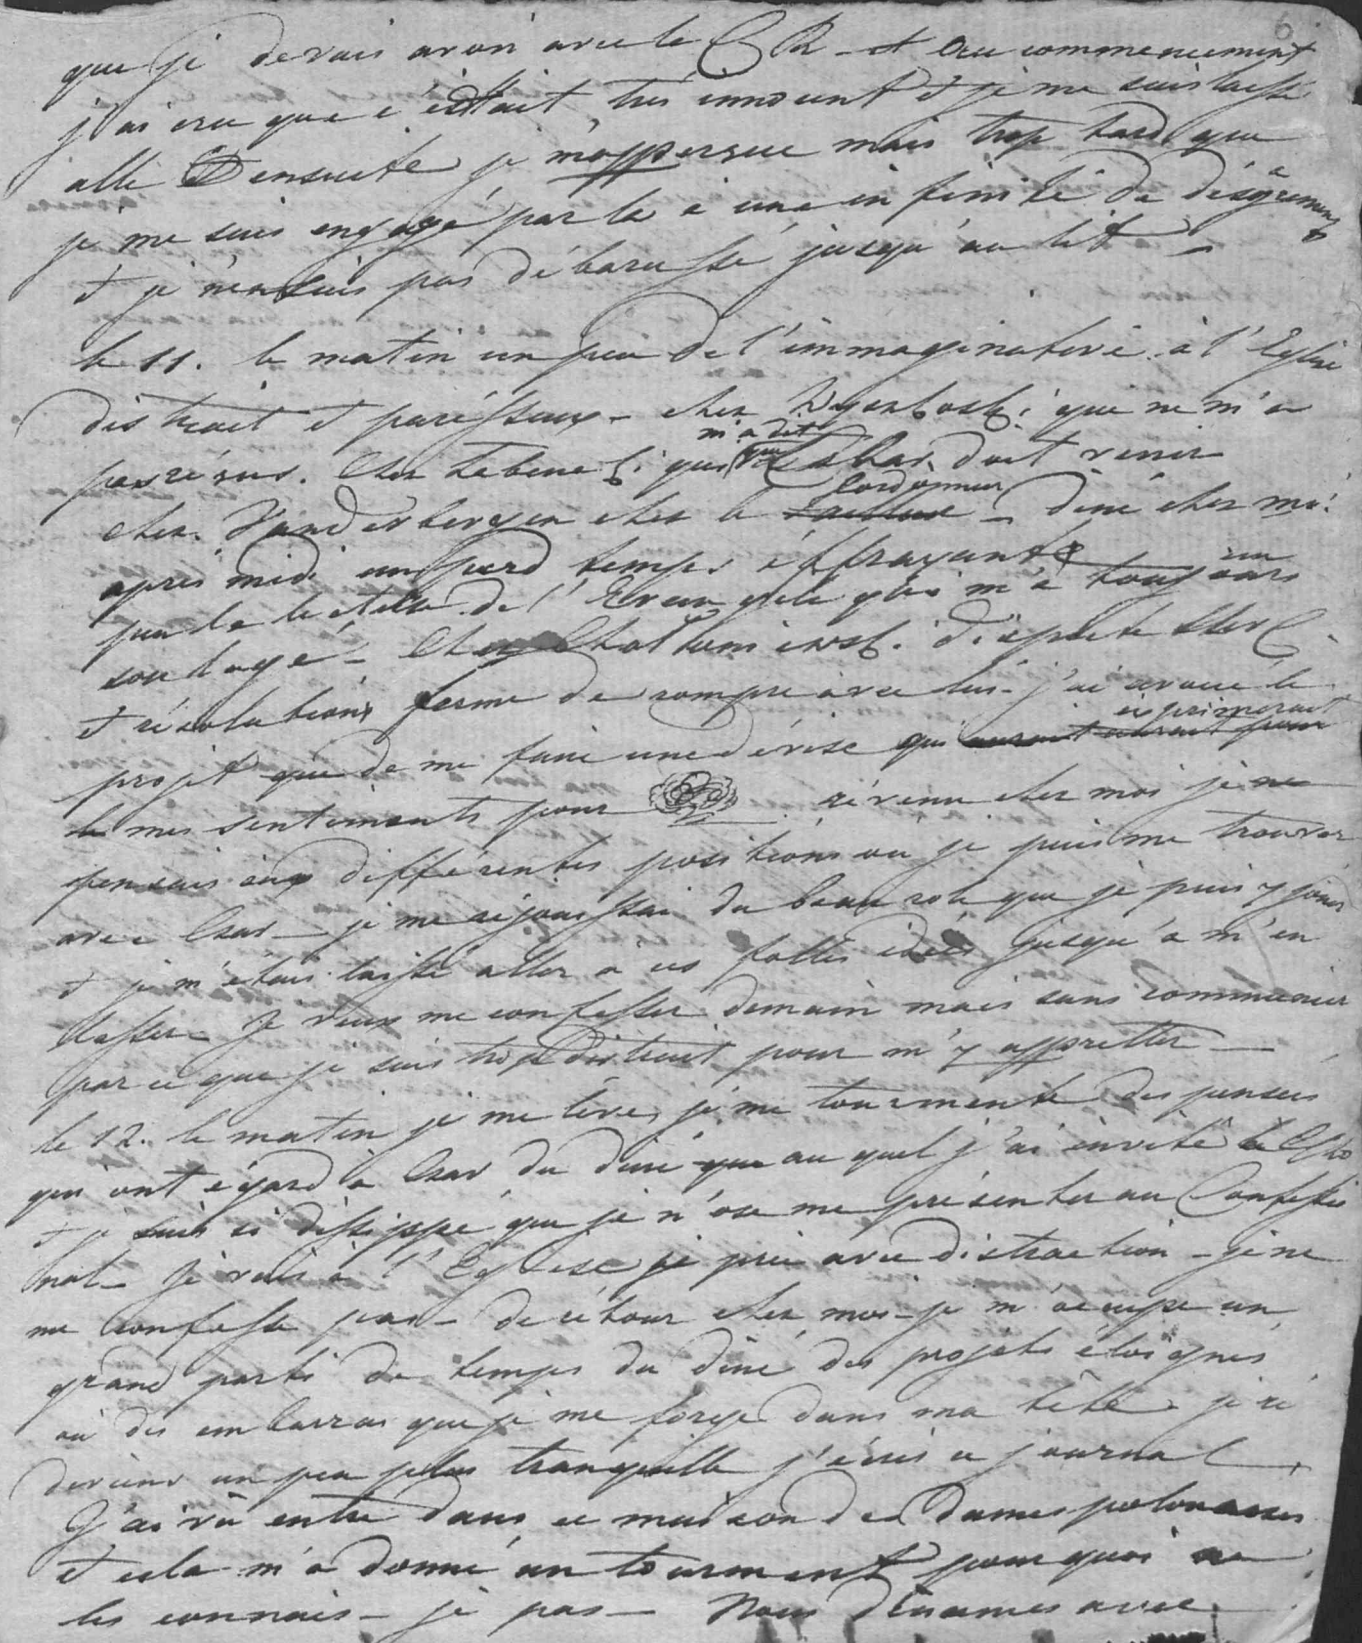 6
que je devais avoir avec le C R - et au commencement
j'ai cru que c'était très innocent et je me suis laissé
allé ensuite je m'apperçue mais trop tard que
je me suis engagé par la a une infinité de désagremens
et je n'en suis pas débarassé jusqu'au lit -
le 11. le matin un peu de l'immaginative à l'Eglise
distrait et paresseux - chez que ne m'a
pas réçus. Chez qui m'a dit que doit venir
chez. chez le cordonnier - diné chez moi
après midi un perd temps éffrayant
peu la lecture de l' m'a toujours
soulagé - Chez dispute
et résolutions ferme de rompre avec lui - j'ai avoué le
projet que de me faire une dévise qui exprimerait
le mes sentiments pour révenu chez moi je ne
pensais aux différentes positions ou je puis me trouver
avec Csar - je me rejouissai du beau role que je puis y jouer
et je m'étais laissé aller à ces folles idées jusqu'a m'en
lasser - Je veux me confesser demain mais sans communier
par ce que je suis trop distrait pour m'y appretter -
le 12. le matin je me lève, je me tourmente des pensées
qui ont égard à Csar du diné que au quel j'ai invité
et je suis si dissippé que je n'ose me présenter au Confessio
nal - je vais à l'Eglise je prie avec distraction - je ne
me confesse pas - de rétour chez moi - je m'occupe un
grand parti de temps du diné des projets éloignés
où des embarras que je me forge dans ma tête - je ré
deviens un peu plus tranquille j'écris ce journal
J'ai vû entré dans ce maison des Dames polonaises
et cela m'a donné un tourment pourquoi ne
les connais - je pas - Nous dinames avec